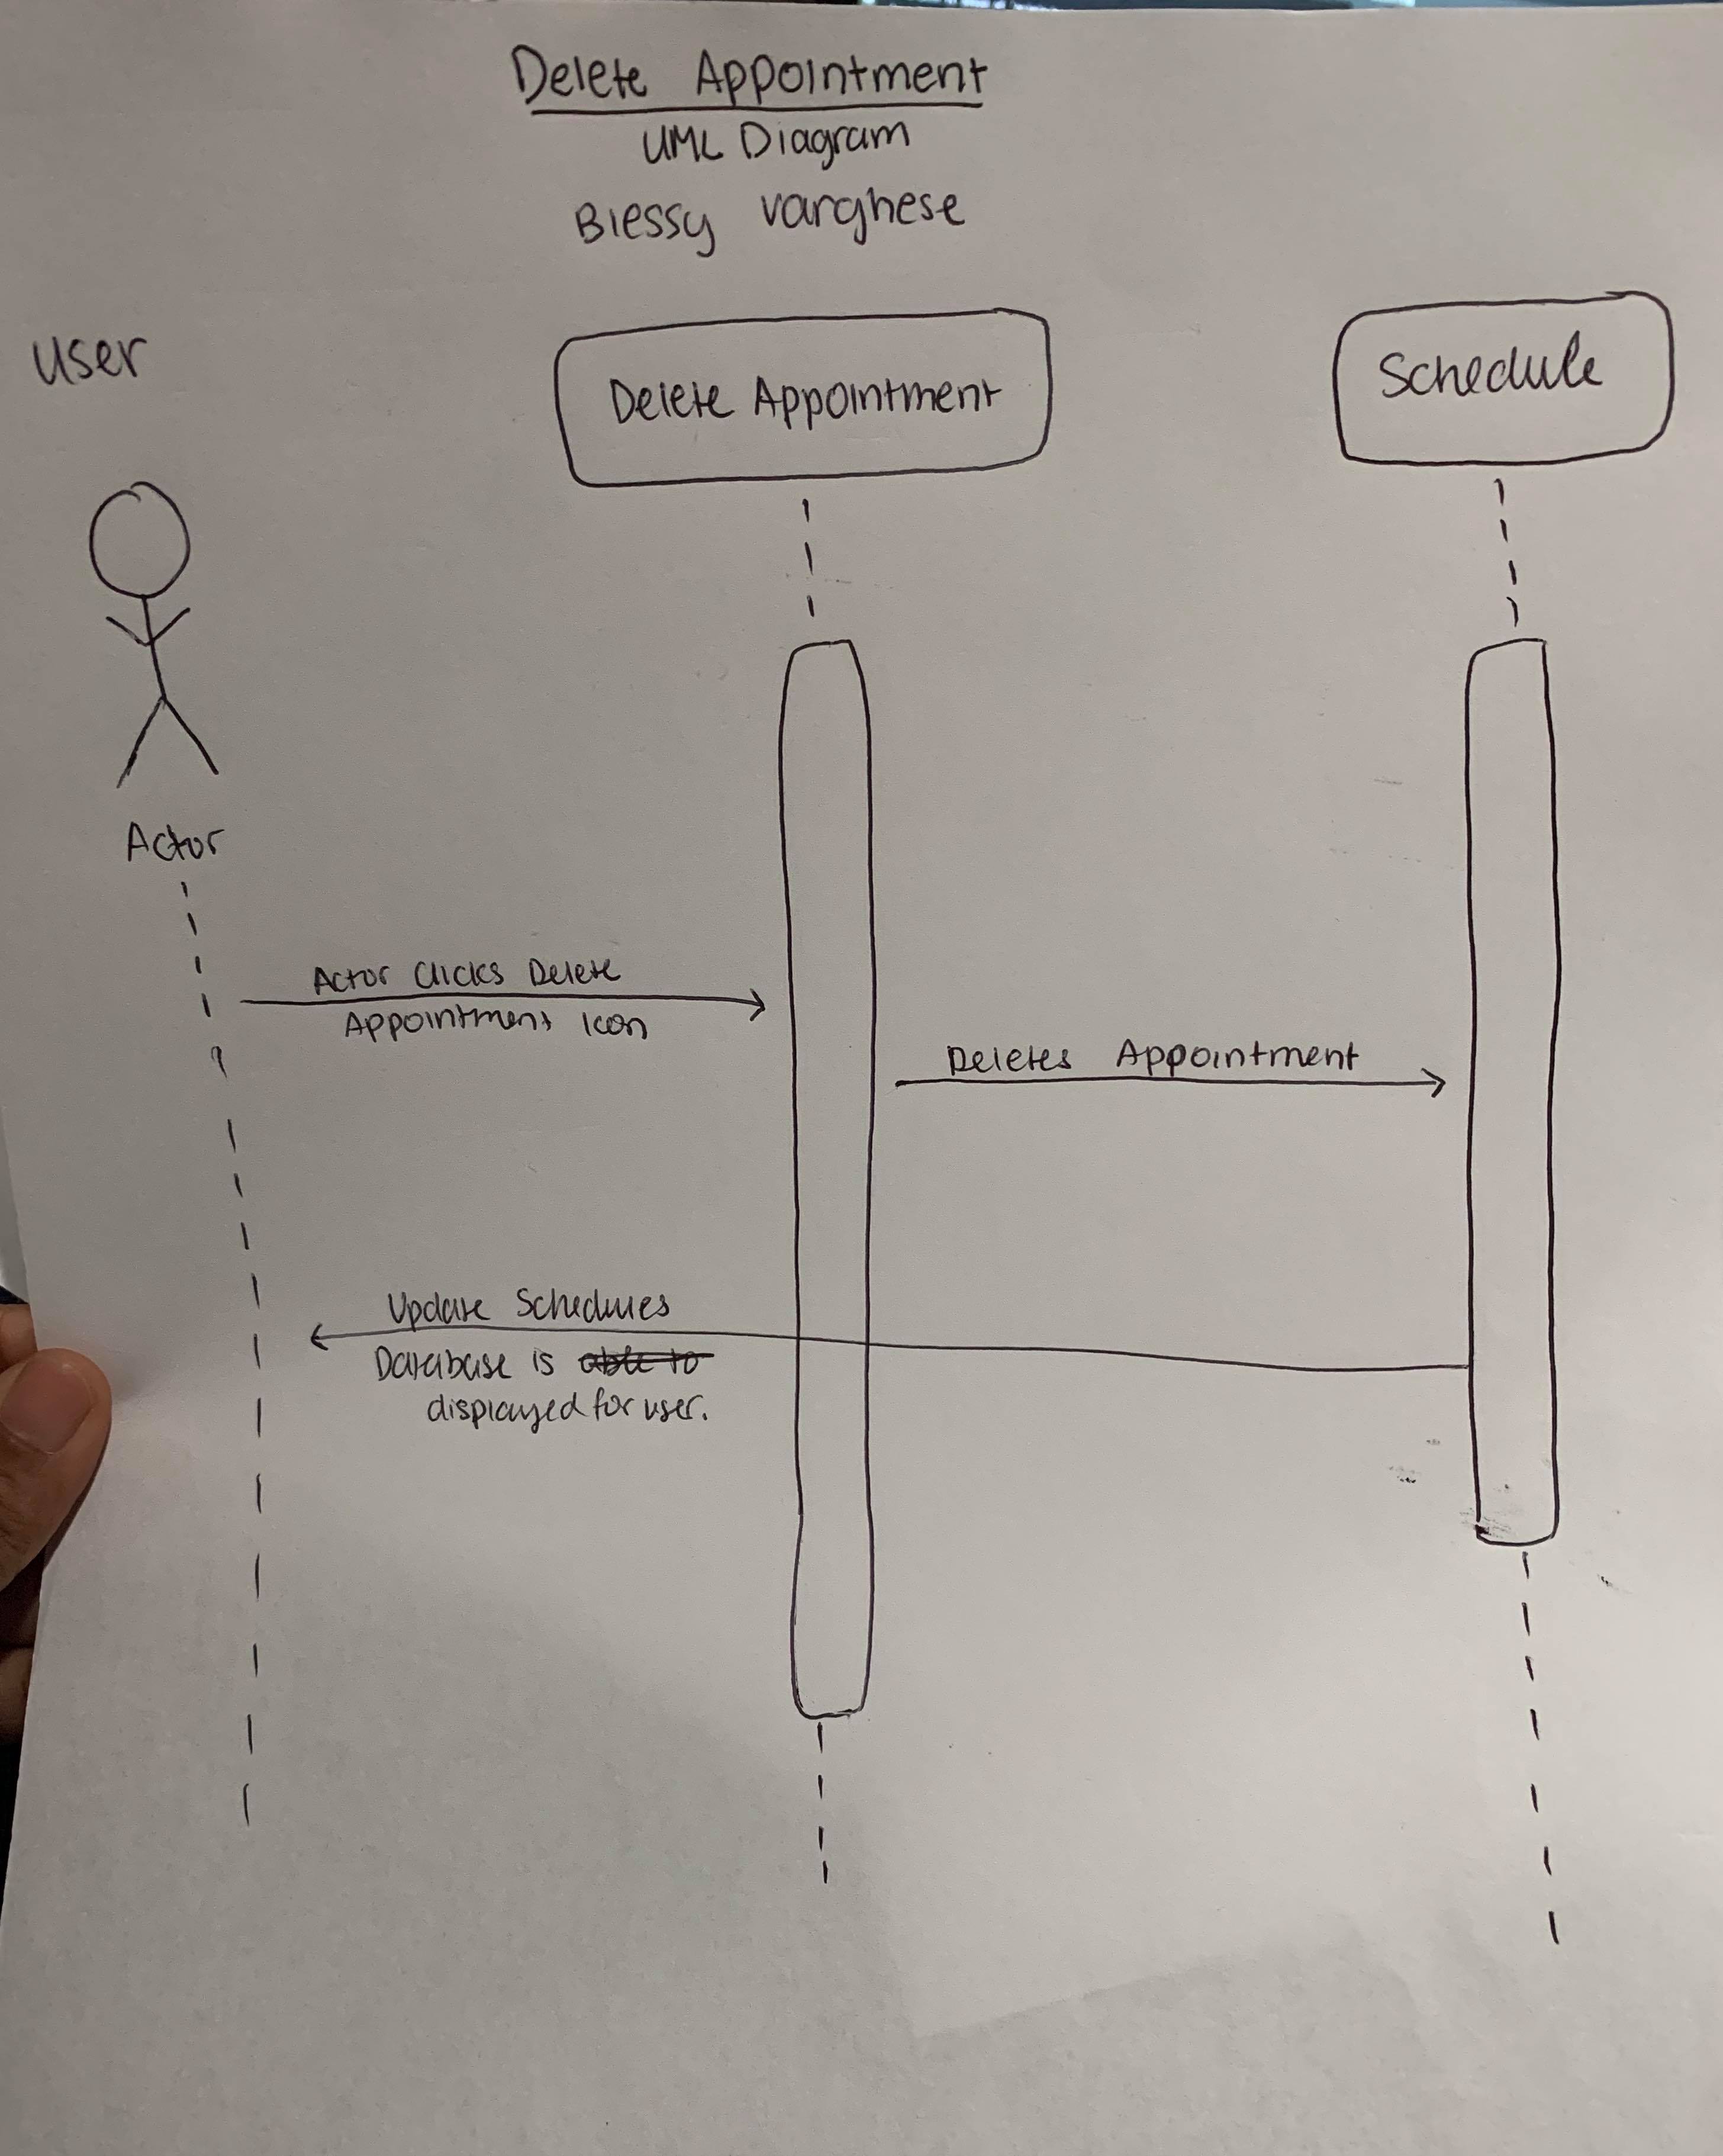 Delete Appointment
UML Diagram
Blessy Varghese
User
Delete Appointment
Schedule
Actor
Actor Clicks Delete
Appointment Icon
Deletes Appointment
Update Schedules
Database is able to
displayed for user.